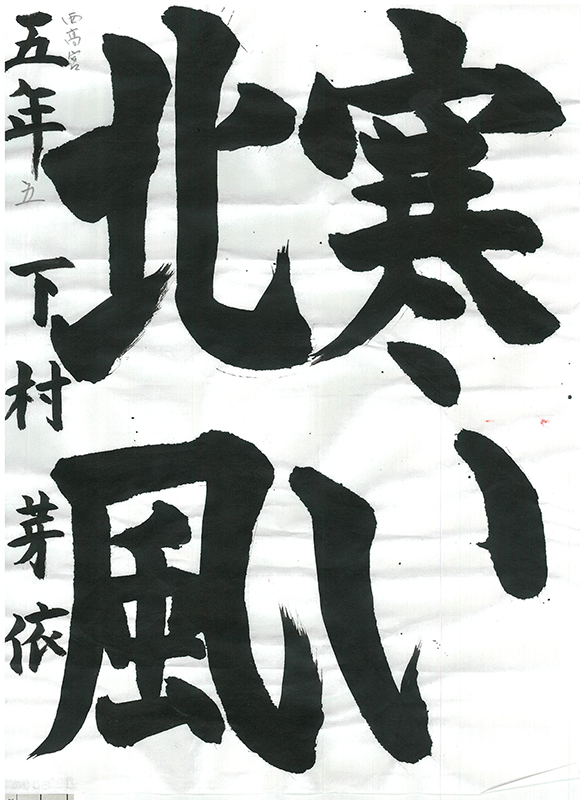 寒い
北風
五年 下村 芽依
西高宮
五